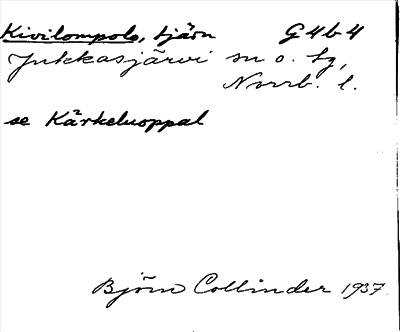 Kivilompolo, tjärn G4b4
Jukkasjärvi sn o. tg,
Norrb. l.
se Kärkeluoppal
Björn Collinder 1937